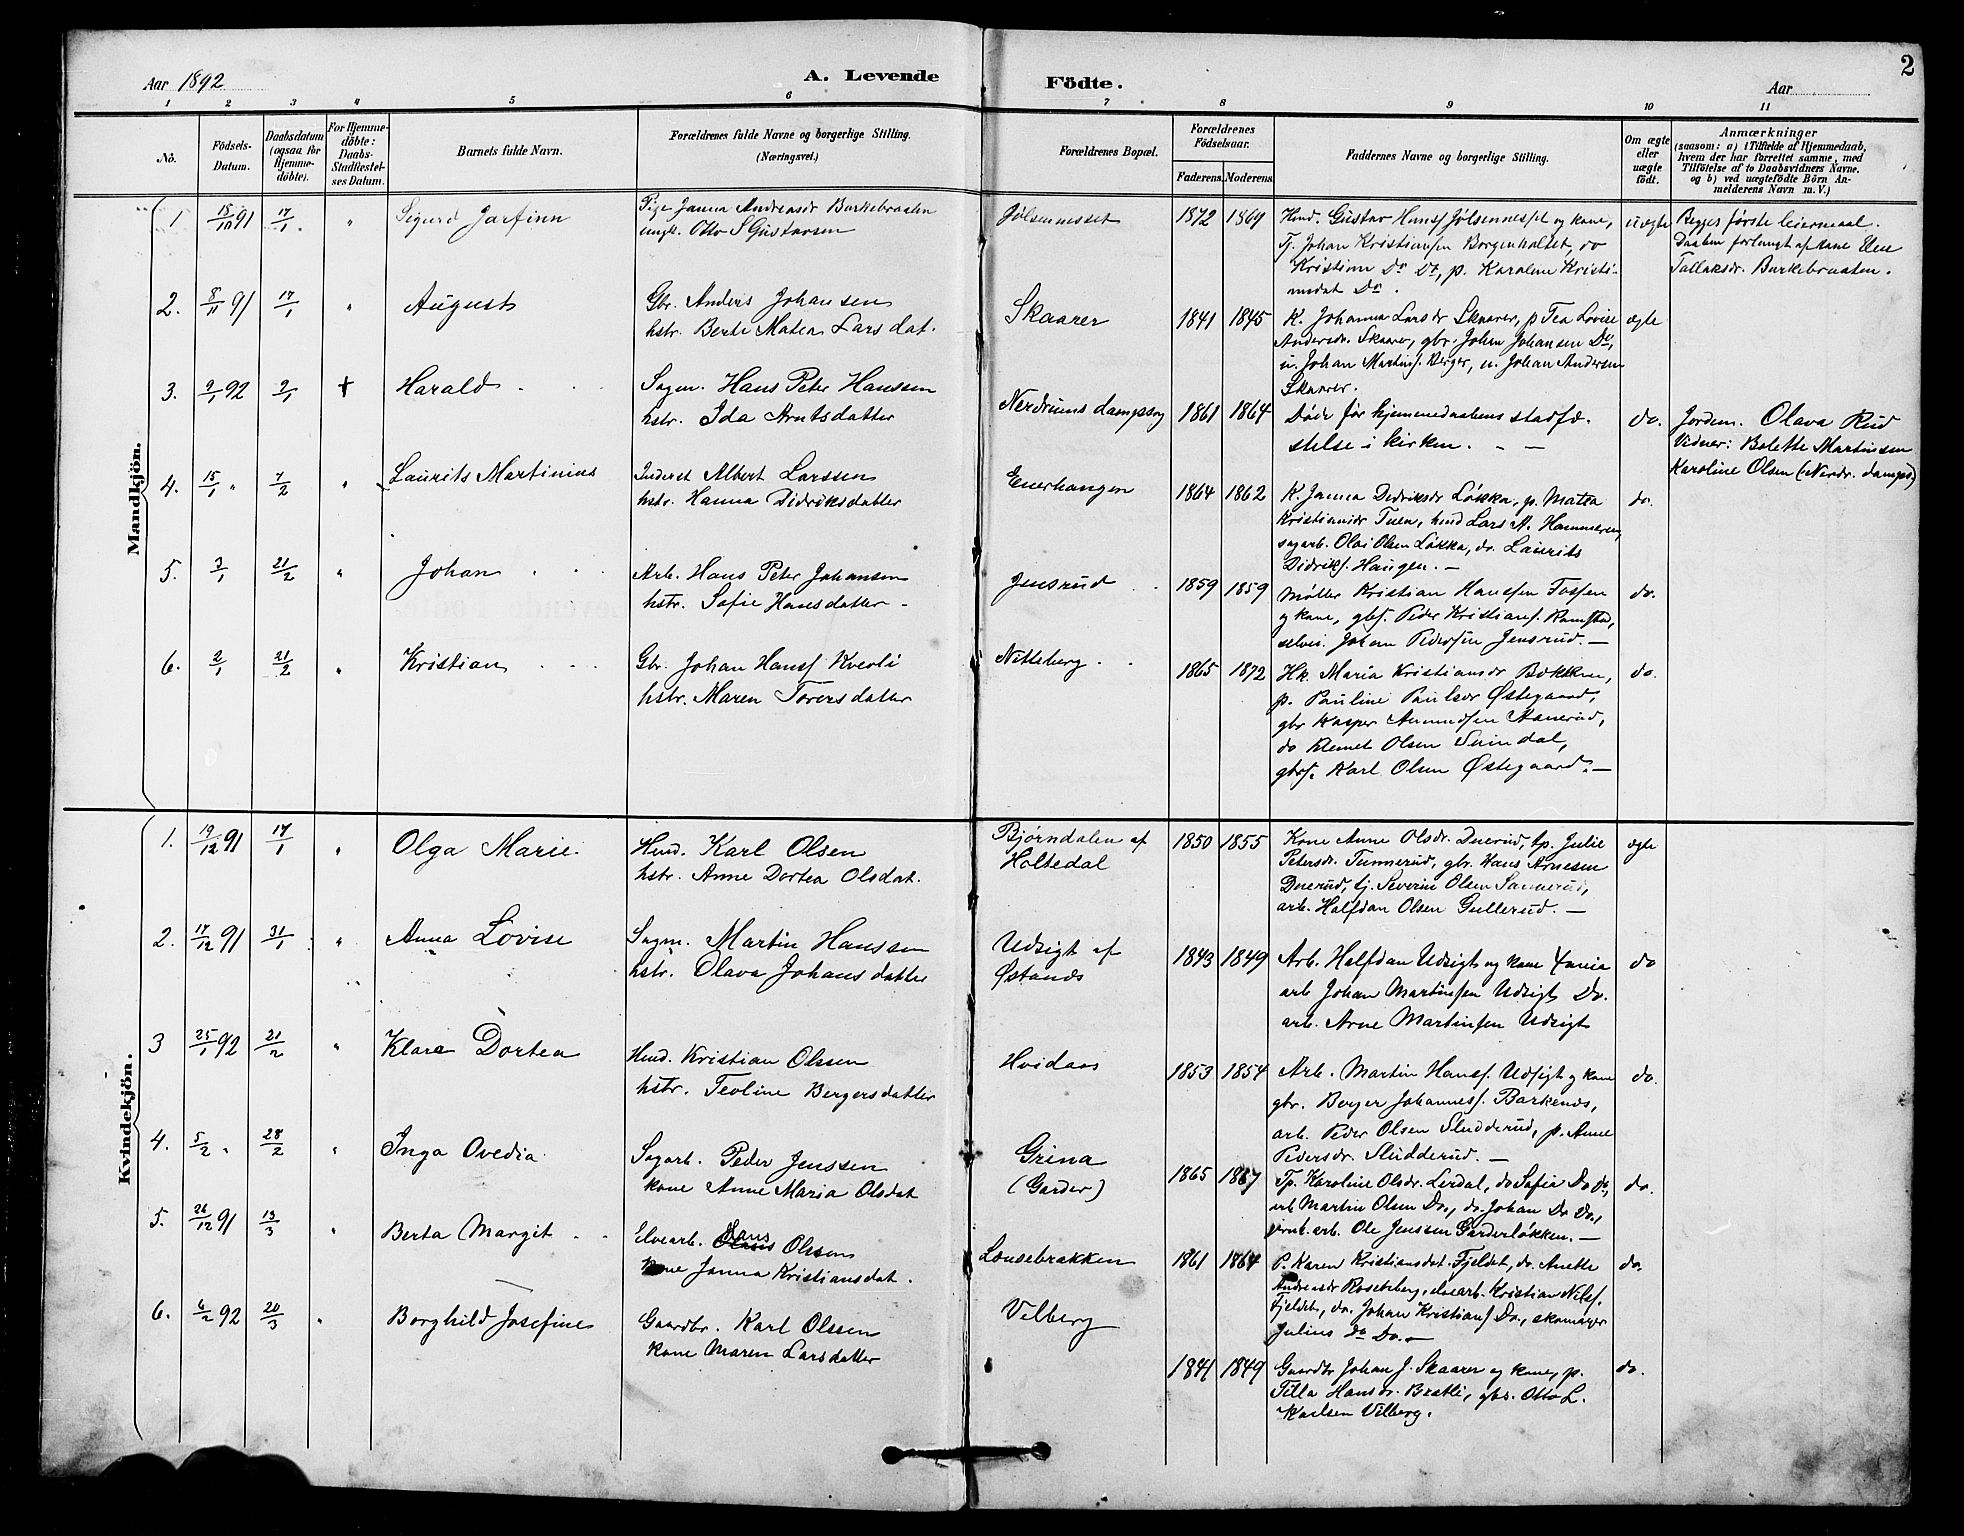 2
Aar 1892
A. Levende Födte.
Aar
1 2 3 4 5 6 7 8 9 10 11
Nö.
Födsels-Datum.
Daabsdatum (ogsaa for Hjemme-döbte).
For Hjemme-döbte: Daabs-Stadfæstel-ses Datum.
Barnets fulde Navn.
Forældrenes fulde Navne og borgerlige Stilling. (Næringsvei.)
Forældrenes Bopæl.
Forældrenes Födselsaar.
Faderens. Moderens.
Faddernes Navne og borgerlige Stilling.
Om ægte eller uægte födt.
Anmærkninger
(saasom: a) i Tilfælde af Hjemmedaab, hvem der har forrettet samme, med Tilföielse af to Daabsvidners Navne. og b) ved uægtefödte Börn An-melderens Navn m. V.)
Mandkjön.
1 15/10 91 17/1 " Sigurd Jarfinn
Pige Janna Andreasdr Burkebraaten
ungk. Otto S Gustavsen
Jølsennesset 1872 1869
Hmd. Gustav Hansf Jølsennesset og kone,
Tj. Johan Kristiansen Borgenholtet, do
Kristian Do Do, p. Karoline Kristi-
ansdat Do.
uægte
Begges første leiermaal.
Daaben forlangt af kone Elen
Tollaksdr. Burkebraaten.
2. 8/11 91 17/1 " August
Gbr. Anders Johansen
hstr. Berte Matea Larsdat.
Skaarer 1841 1845
K. Johanna Larsdr Skaarer, p Tea Lovise
Andersdr. Skaarer, gbr. Johan Johansen Do,
u. Johan Martinsf. Berger, u. Johan Andersen
Skaarer.
ægte
3. 2/1 92 2/1 + Harald
Sagm. Hans Peter Hanssen
hstr. Ida Arntsdatter
Nerdrums dampsag 1861 1864
Døde før hjemmedaabens stadfæ-
stelse i kirken. - -
do.
Jordem. Olava Rud
Vidner: Bolette Martinsen
Karoline Olsen (Nerdr. damps.)
4. 15/1 " 7/2 " Laurits Martinius
Inderst Albert Larssen
hstr. Hanna Didriksdatter
Enerhaugen 1864 1862
K. Janna Didriksdr Løkka, p. Matea
Kristiansdr Tuen, hmd Lars A. Hammeren,
sagarb. Olai Olsen Løkka, do. Laurits
Didriksf. Haugen. -
do.
5. 3/1 21/2 " Johan
Arb. Hans Peter Johansen
hstr. Sofie Hansdatter -
Jensrud 1859 1859
Møller Kristian Hanssen Fossen
og kone, gbf. Peder Kristiansf. Ramstad,
selvei. Johan Pedersen Jensrud. -
do.
6. 2/1 21/2 " Kristian
Gbr. Johan Hansf Kverli
hstr. Maren Toversdatter
Nitteberg. 1865 1872
Hk. Maria Kristiansdr Bakken,
p. Pauline Paulsdr Østegaard,
gbr Kasper Amundsen Aanerud,
do Klemet Olsen Svindal,
gbrf. Karl Olsen Østegaard. -
do.
Kvindekjön.
1. 19/12 91 17/1 " Olga Marie
Hmd. Karl Olsen
hstr. Anne Dortea Olsdat.
Bjørndalen af
Holtedal
1850 1855
Kone Anne Olsdr. Duerud, tp. Julie
Petersdr. Tunnerud, gbr. Hans Arnesen
Duerud, tj. Severin Olsen Sannerud,
arb. Halfdan Olsen Gullerud. -
ægte
2. 17/12 91 31/1 " Anna Lovise
Sagm. Martin Hanssen
hstr. Olava Johansdatter
Udsigt af
Østands
1843 1849
Arb. Halfdan Udsigt og kone
arb Johan Martinsen Udsigt Do.
arb. Arne Martinsen Udsigt
do
3 25/1 92 21/2 " Klara Dortea
Hmd. Kristian Olssen
hstr. Teoline Bergersdatter
Hvidaas 1853 1854
Arb. Martin Hansf. Udsigt og kone
gbr. Berger Johannesf. Barkenæs,
arb. Peder Olsen Sludderud, p. Anne
Pedersdr. Sludderud. -
do.
4. 5/2 " 28/2 " Inga Ovedia
Sagarb. Peder Jenssen
kone Anne Maria Olsdat
Grina
(Garder)
1865 1867
Tp. Karoline Olsdr. Lerdal, do Sofia Do Do,
arb Martin Olsen Do., do. Johan Do Do.,
jernb.arb. Ole Jenssen Garderløkken. -
do.
5. 26/12 91 13/3 " Berta Margit
Elvearb. Hans Olssen
kone Janna Kristiansdat.
Lousebrækken 1861 1864
P. Karen Kristiansdat. Fjeldet, do. Anette
Andersdr Roseteberg, elvearb. Kristian Nilsf.
Fjeldet, do. Johan Kristiansf Do., skomager
Julius Do Do. -
do.
6. 6/2 92 20/3 " Borghild Josefine
Gaardbr. Karl Olssen
kone Maren Larsdatter
Vilberg
1841 1849
Gaardbr Johan J. Skaarer og kone, p.
Tilla Hansdr. Bratli, gbs. Otto L.
Karlsen Vilberg.
do.